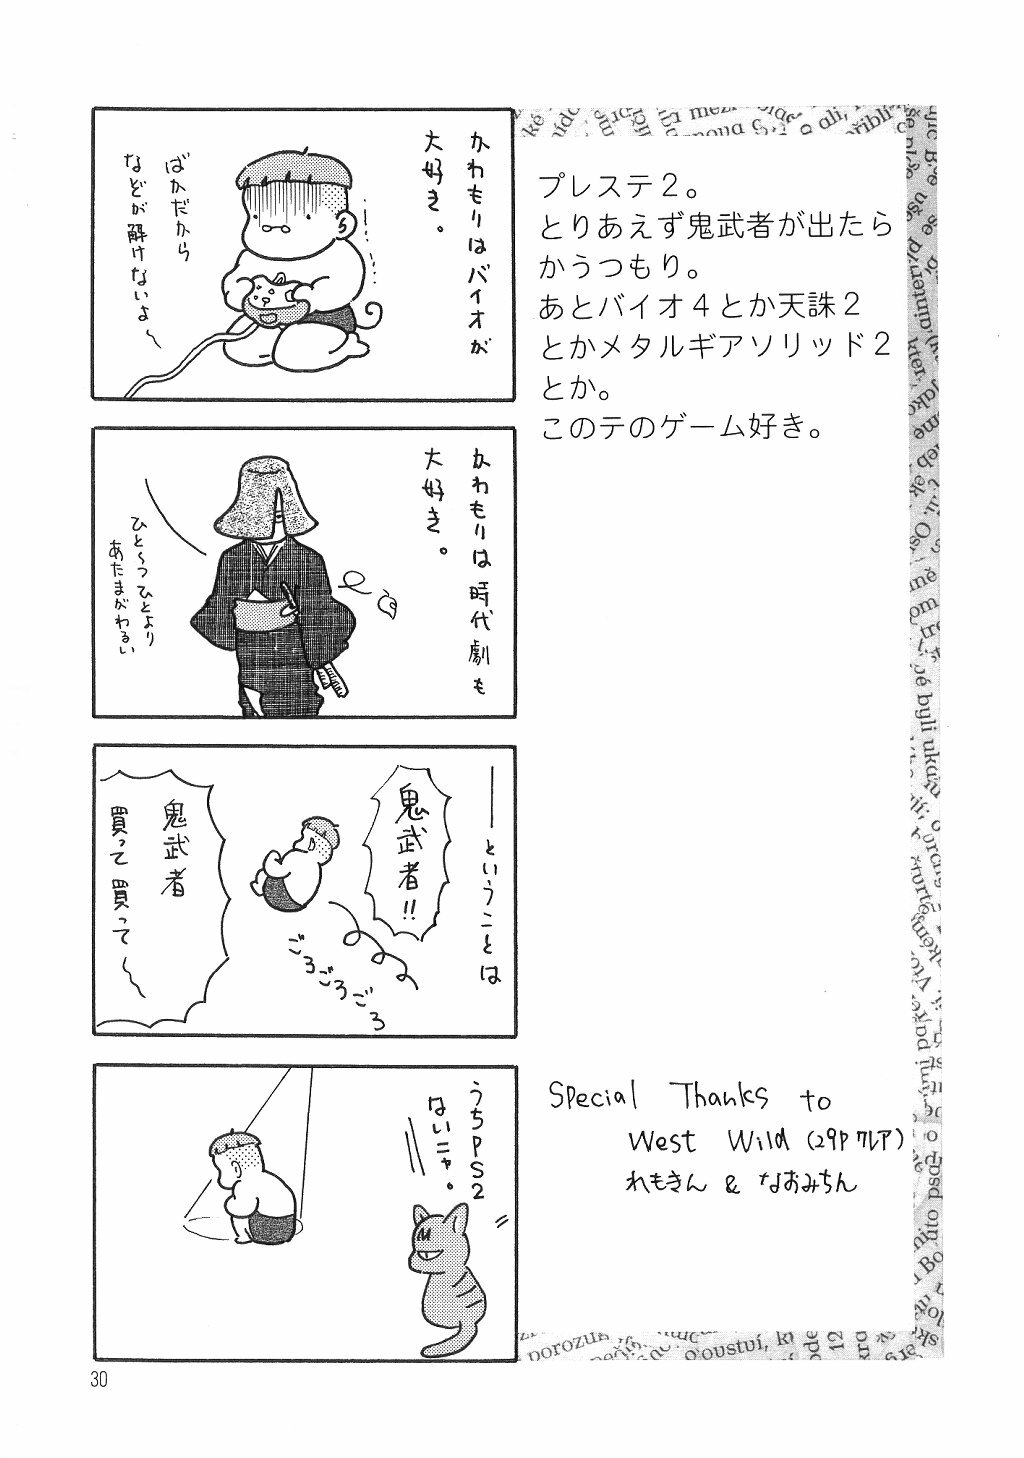 かわもりはバイオが
大好き。
ばかだから
などが解けないよ〜
かわもりは時代劇も
大好き。
ひと〜つひとより
あたまがわるい
――ということは
鬼武者!!
ごろごろごろ
鬼武者
買って買って〜
うちPS2
ないニャ。
プレステ2。
とりあえず鬼武者が出たら
かうつもり。
あとバイオ4とか天誅2
とかメタルギアソリッド2
とか。
このテのゲーム好き。
Special Thanks to
West Wild (29P クレア)
れもきん & なおみちん
30